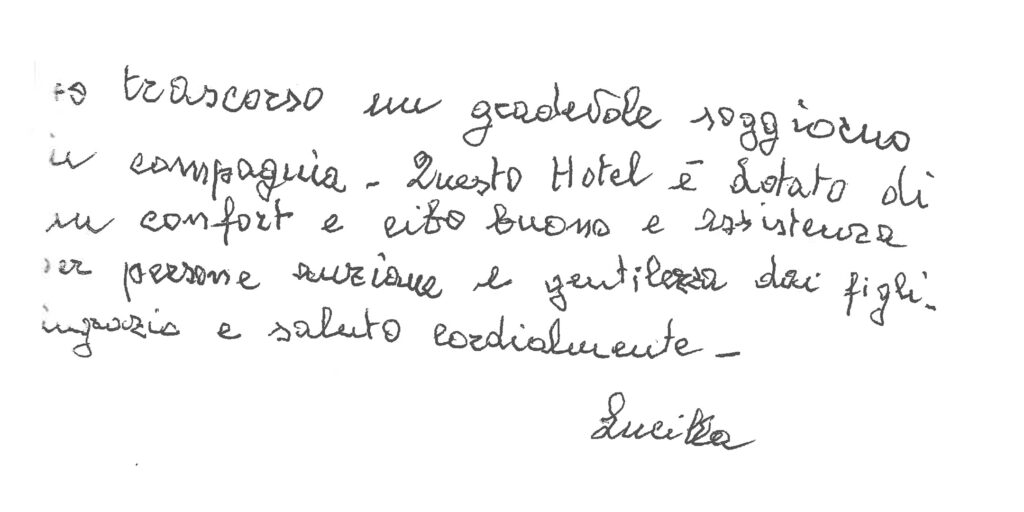 ho trascorso un gradevole soggiorno
in compagnia - Questo Hotel è dotato di
un confort e cibo buono e assistenza
per persone anziane e gentilezza dai figli -
ingrazio e saluto cordialmente -
Lucilla